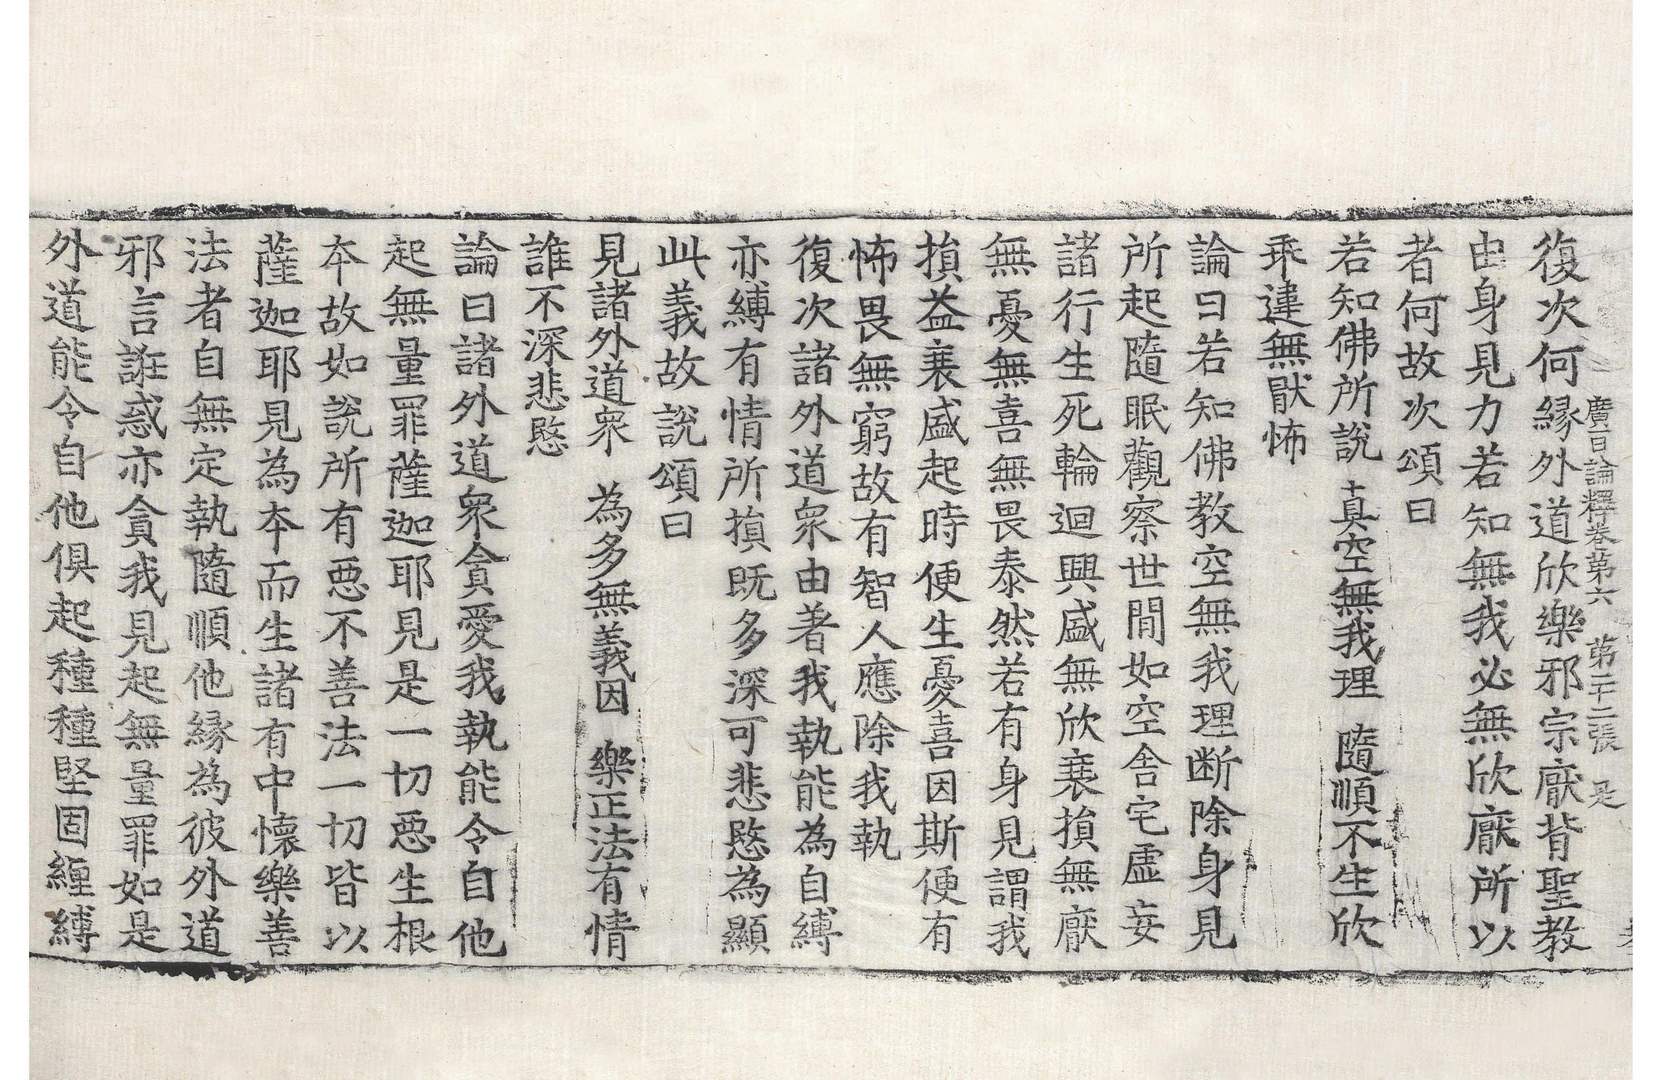 廣百論釋卷第六　第二十二張　是
復次何縁外道欣樂邪宗厭背聖教
由身見力若知無我必無欣厭所以
者何故次頌曰
若知佛所說　真空無我理　隨順不生欣
乖違無厭怖
論曰若知佛教空無我理断除身見
所起隨眠觀察世間如空舍宅虛妄
諸行生死輪迴興盛無欣衰損無厭
無憂無喜無畏泰然若有身見謂我
損益衰盛起時便生憂喜因斯便有
怖畏無窮故有智人應除我執
復次諸外道衆由著我執能為自縛
亦縛有情所損既多深可悲愍為顯
此義故說頌曰
見諸外道衆　為多無義因　樂正法有情
誰不深悲愍
論曰諸外道衆貪愛我執能令自他
起無量罪薩迦耶見是一切惡生根
本故如說所有惡不善法一切皆以
薩迦耶見為本而生諸有中懷樂善
法者自無定執隨順他縁為彼外道
邪言誑惑亦貪我見起無量罪如是
外道能令自他俱起種種堅固纏縛